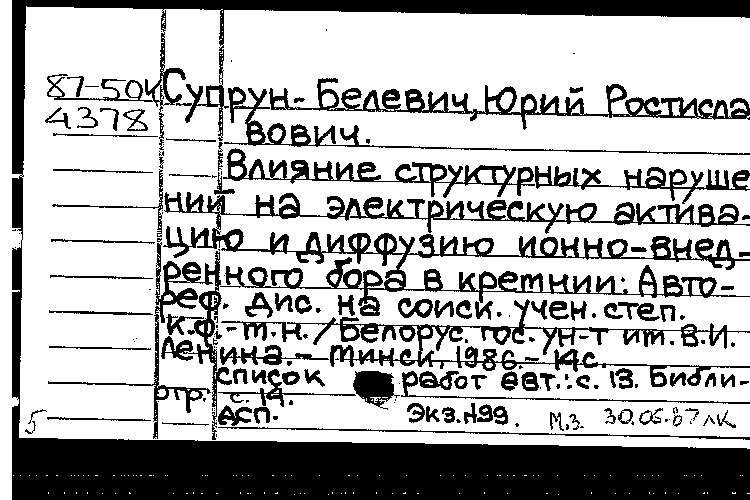 87-50к Супрун-Белевич, Юрий Ростисла
4378 вович.
Влияние структурных наруше
ний на электрическую актива-
цию и диффузию ионно-внед-
ренного бора в кретнии: Авто-
реф. дис. на соиск. учен. степ.
к.ф.-т.н. / Белорус. гос. ун-т им. В.И.
Ленина. - Минск, 1986. - 14с.
список работ авт.: с. 13. Библи-
отр.: с. 14.
АСП. Экз. N99. М.З. 30.06.87 лк
5